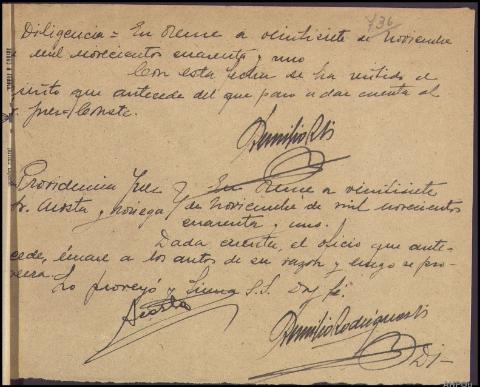 736
Diligencia = En Orense a veintisiete de Noviembre
mil novecientos cuarenta y uno
Con esta fecha se ha recibido el
que antecede del que paso a dar cuenta al
Conste.
Providencia Juez En Orense a veintisiete
Sr. Acosta y Noriega de Noviembre de mil novecientos
cuarenta y uno.
Dada cuenta, el oficio que ante-
cede, únase a los autos de su razón y luego se pro-
veera.
Lo proveyó y firma S.S. Doy fé.
Acosta
Rodriguez